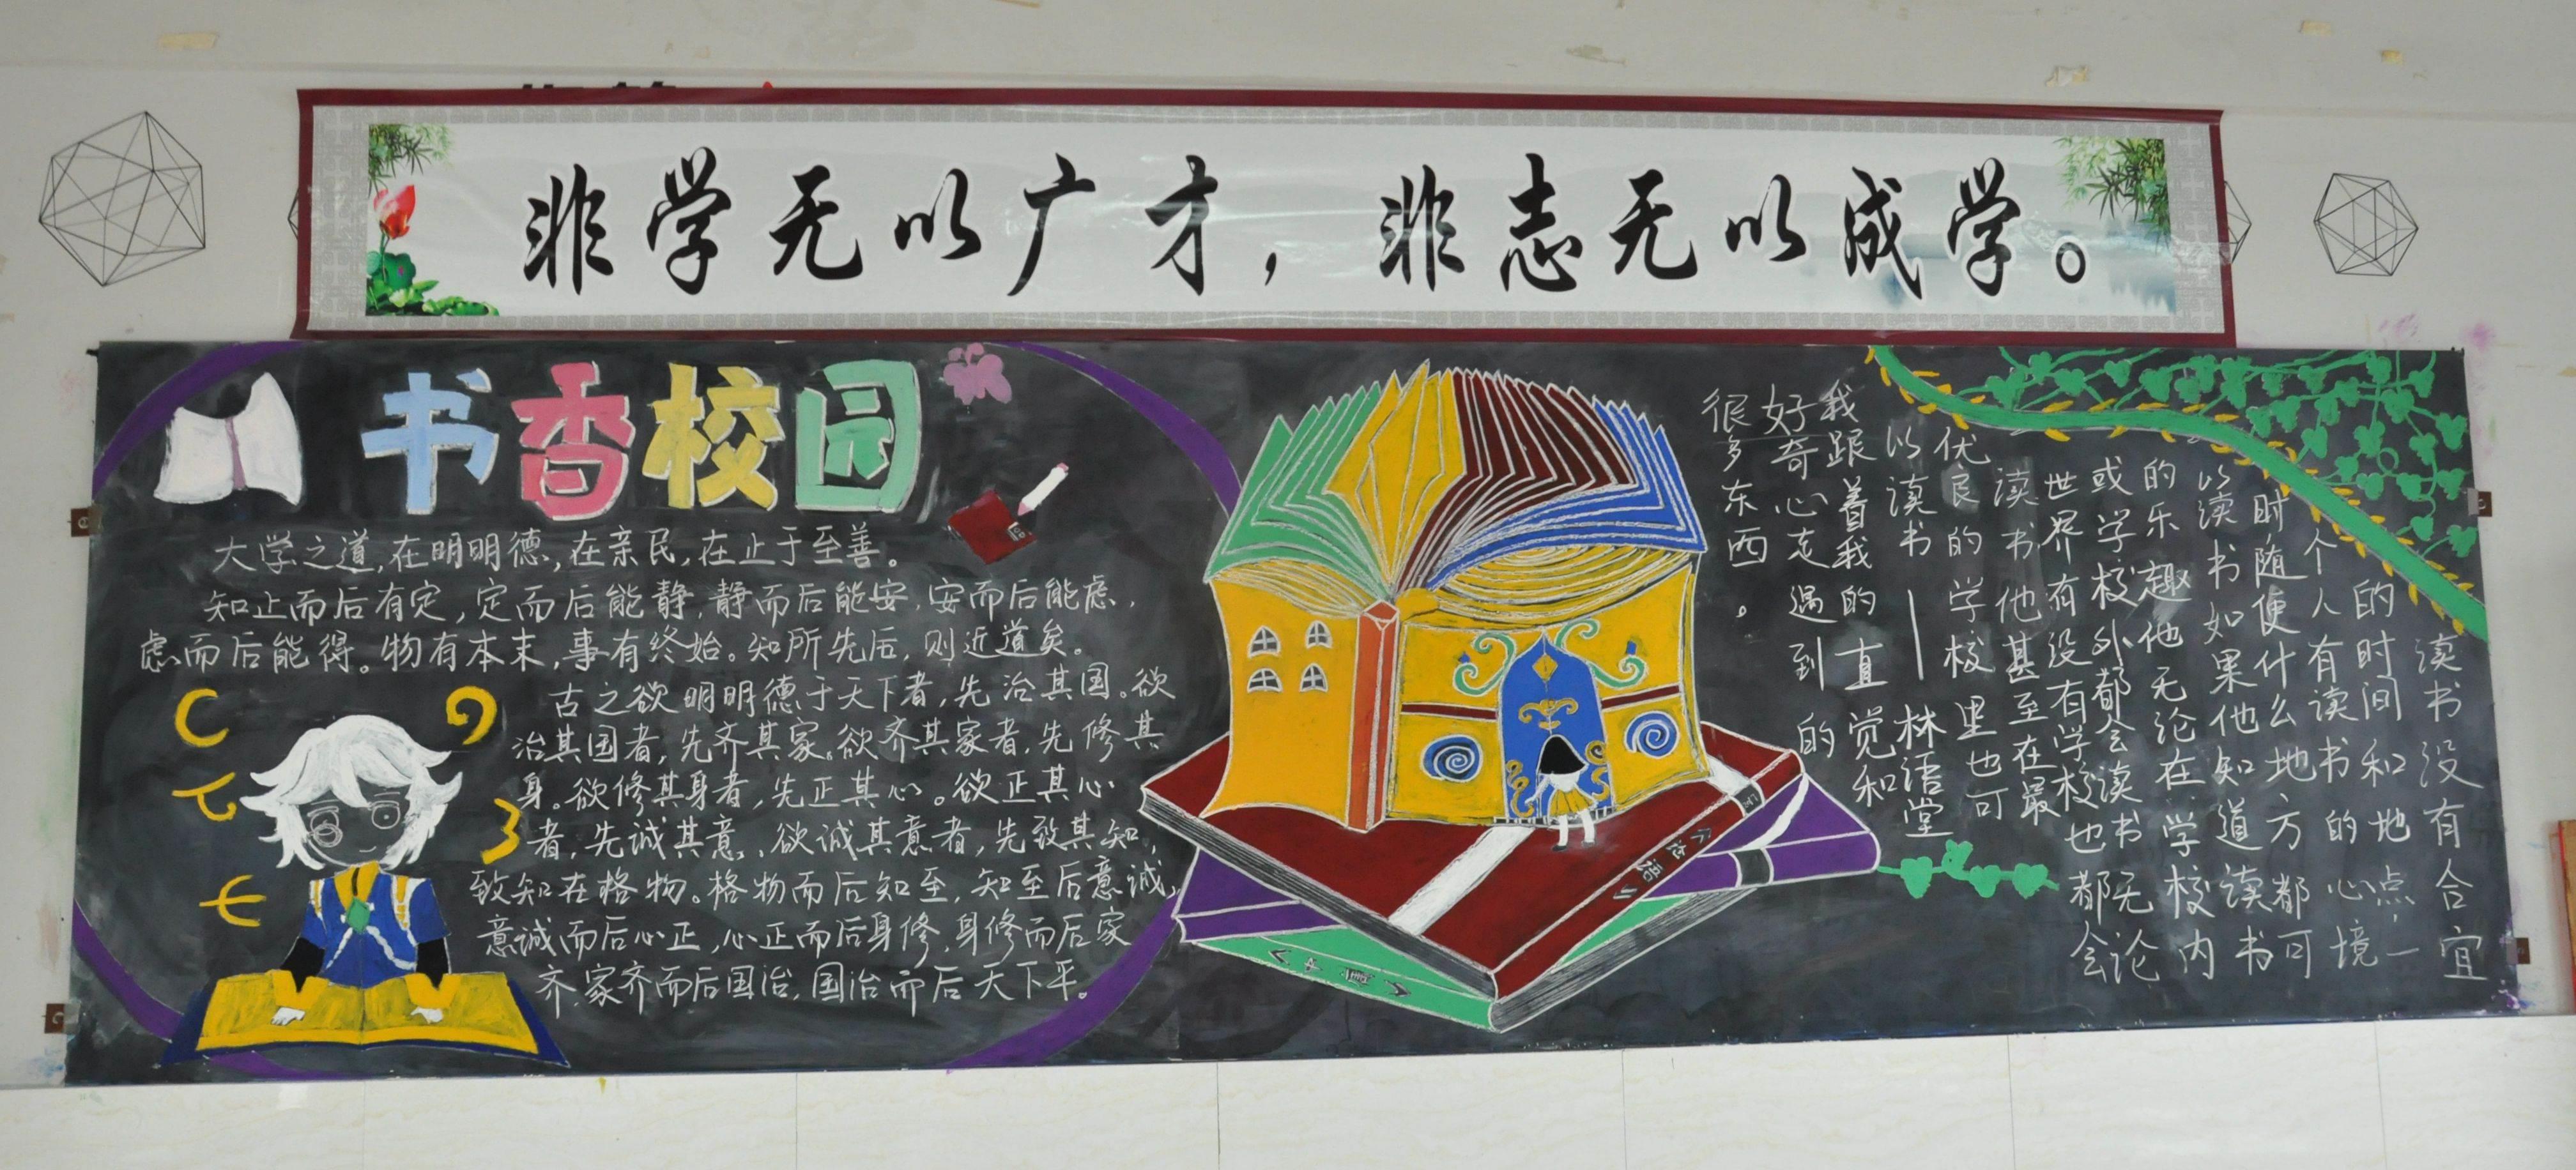 非学无以广才，非志无以成学。
书香校园
大学之道，在明明德，在亲民，在止于至善。
知止而后有定，定而后能静，静而后能安，安而后能虑，
虑而后能得。物有本末，事有终始。知所先后，则近道矣。
古之欲明明德于天下者，先治其国。欲
治其国者，先齐其家。欲齐其家者，先修其
身。欲修其身者，先正其心。欲正其心
者，先诚其意，欲诚其意者，先致其知，
致知在格物。格物而后知至，知至后意诚，
意诚而后心正，心正而后身修，身修而后家
齐，家齐而后国治，国治而后天下平。
读书没有合宜
的时间和地点，一
个人有读书的心境
时随便什么地方都可
以读书如果他知道读书
的乐趣他无论在学校内
或学校外都会读书无论
世界有没有学校也都会
读书他甚至在最
优良的学校里也可
以读书——林语堂
我跟着我的直觉和
好奇心走遇到的
很多东西。